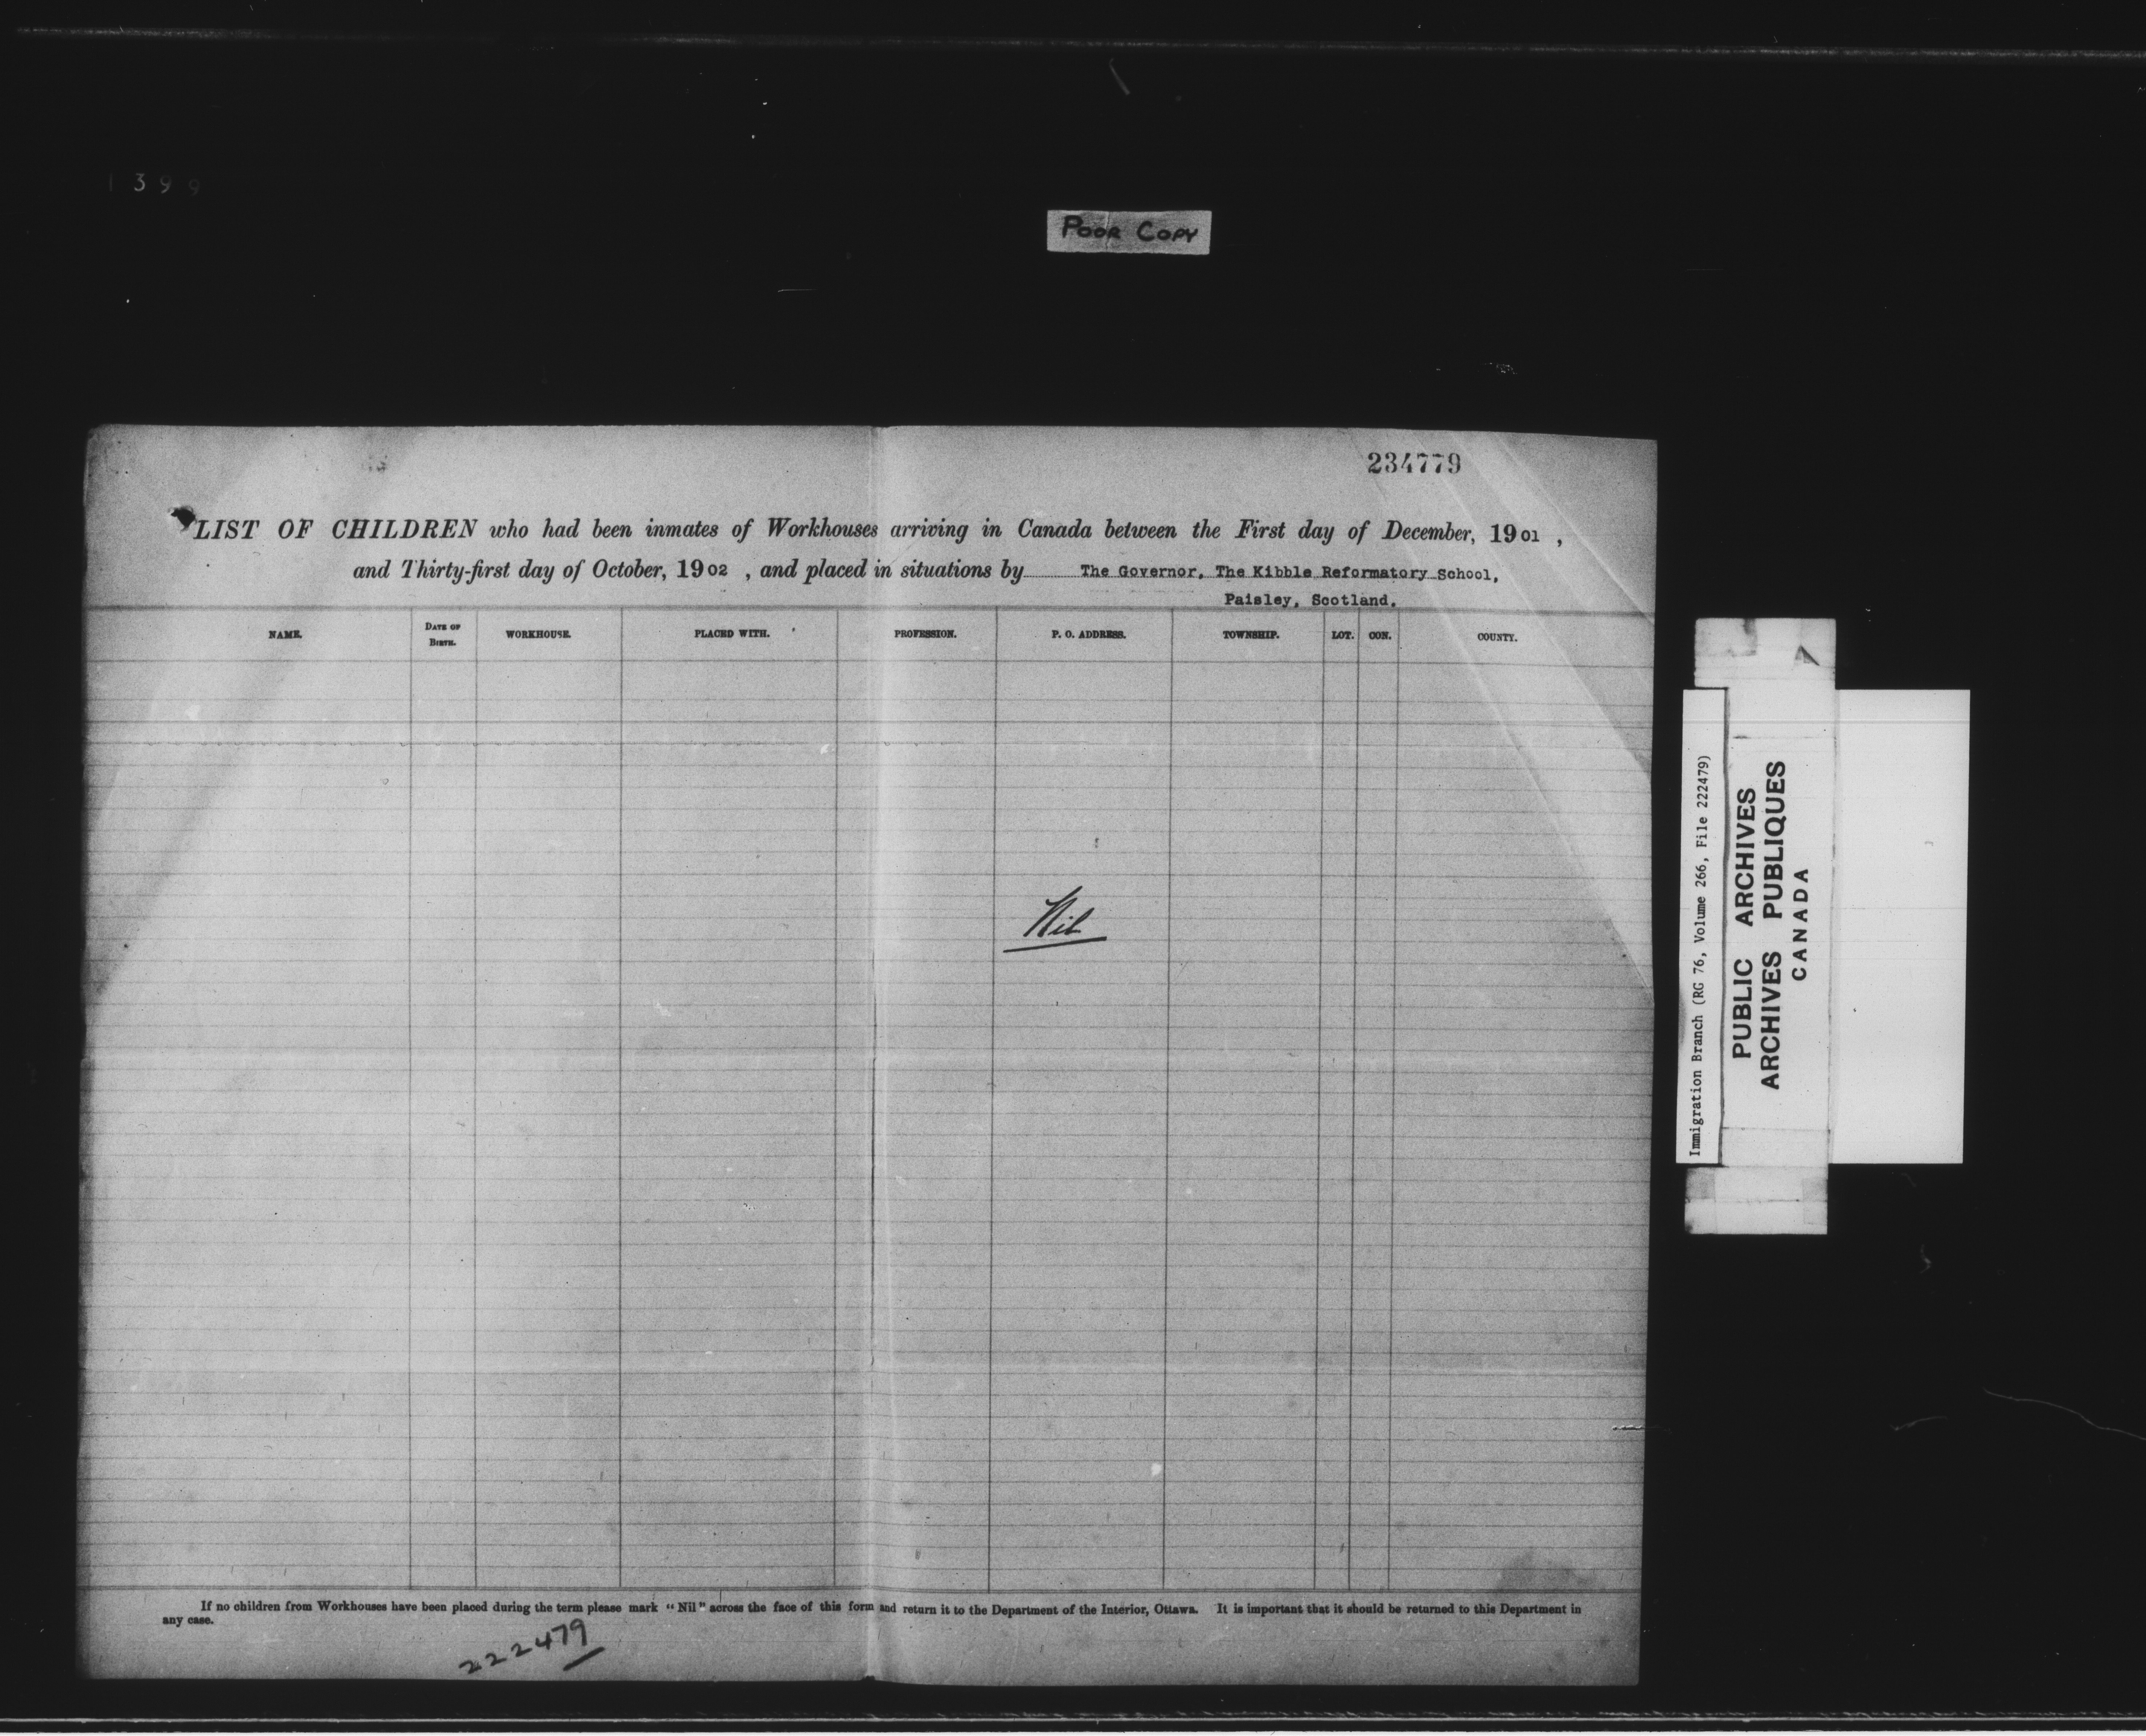 1399
POOR COPY
234779
LIST OF CHILDREN who had been inmates of Workhouses arriving in Canada between the First day of December, 1901 ,
and Thirty-first day of October, 1902 , and placed in situations by The Governor, The Kibble Reformatory School,
Paisley, Scotland.
NAME. DATE OF BIRTH. WORKHOUSE. PLACED WITH. PROFESSION. P. O. ADDRESS. TOWNSHIP. LOT. CON. COUNTY.
Nil
If no children from Workhouses have been placed during the term please mark “Nil” across the face of this form and return it to the Department of the Interior, Ottawa. It is important that it should be returned to this Department in
any case.
222479
Immigration Branch (RG 76, Volume 266, File 222479)
PUBLIC ARCHIVES
ARCHIVES PUBLIQUES
CANADA